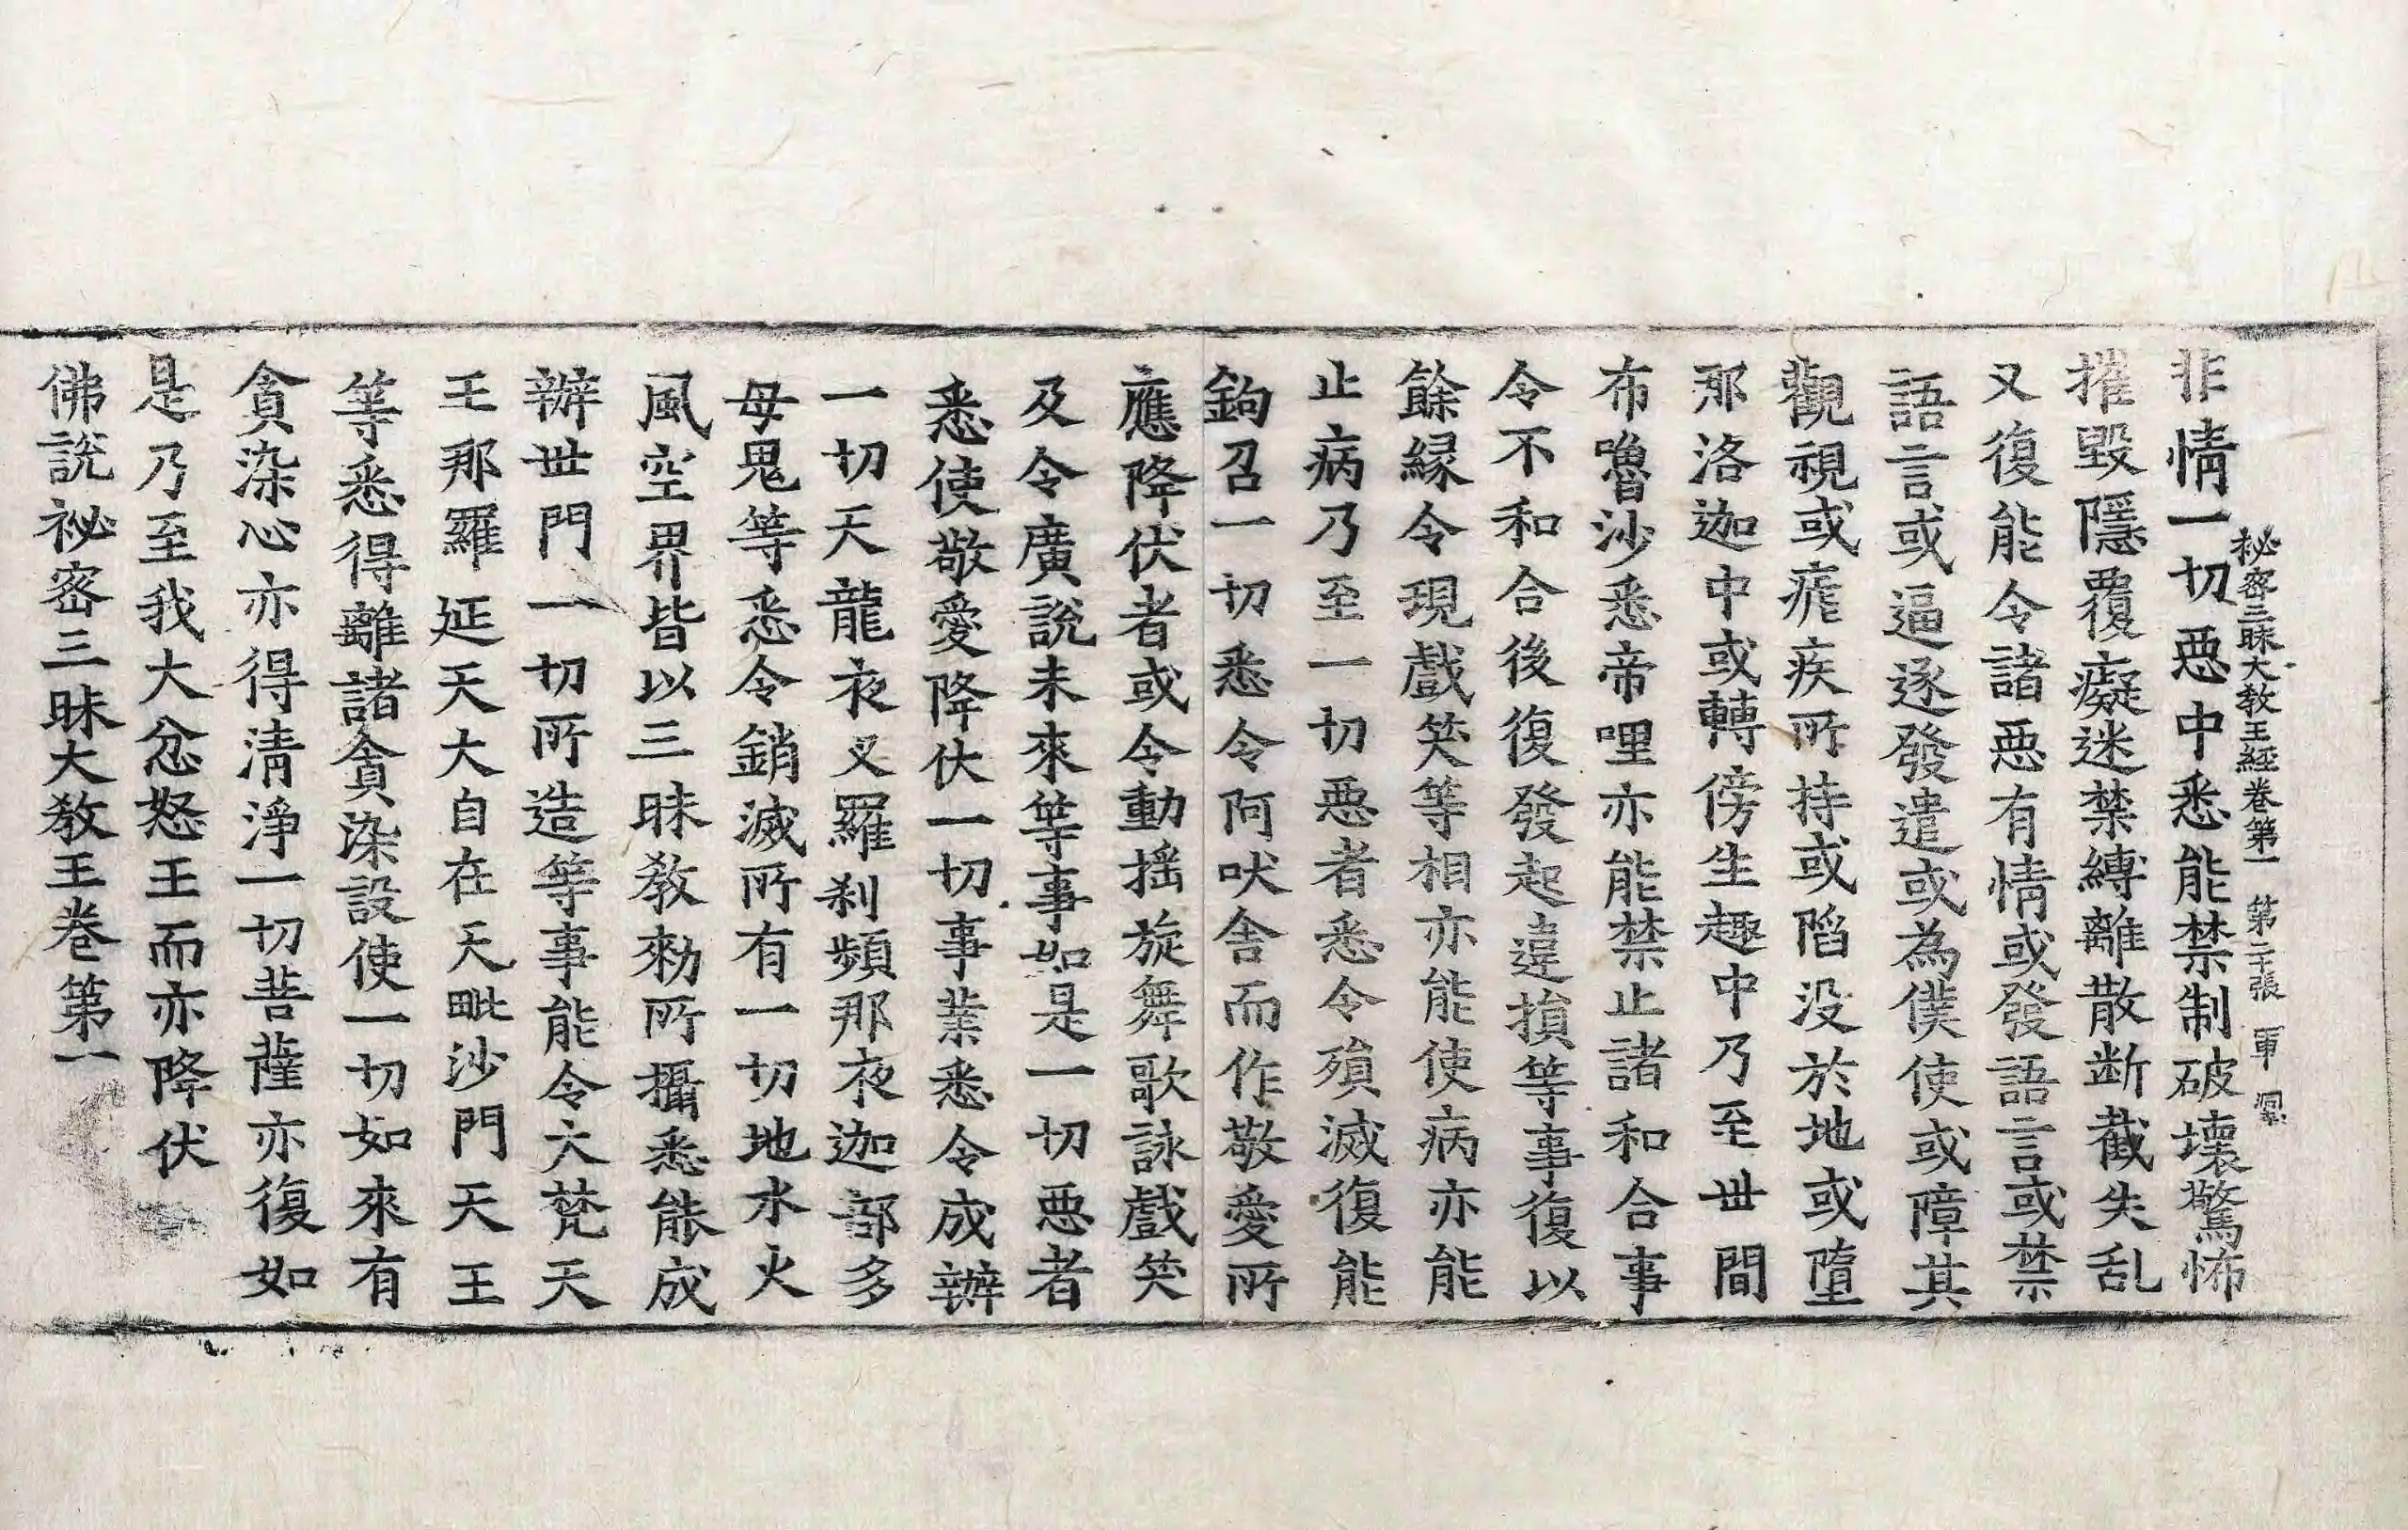 秘密三昧大教王經卷第一　第二十張　軍
非情一切惡中悉能禁制破壞驚怖
摧毀隱覆癡迷禁縛離散断截失乱
又復能令諸惡有情或發語言或禁
語言或逼逐發遣或為僕使或障其
觀視或瘧疾所持或陷没於地或墮
那洛迦中或轉傍生趣中乃至世間
布嚕沙悉帝哩亦能禁止諸和合事
令不和合後復發起違損等事復以
餘緣令現戲笑等相亦能使病亦能
止病乃至一切惡者悉令殞滅復能
鉤召一切悉令阿吠舍而作敬愛所
應降伏者或令動搖旋舞歌詠戲笑
及令廣說未來等事如是一切惡者
悉使敬愛降伏一切事業悉令成辦
一切天龍夜叉羅刹頻那夜迦部多
母鬼等悉令銷滅所有一切地水火
風空界皆以三昧教勑所攝悉能成
辦世間一切所造等事能令大梵天
王那羅延天大自在天毗沙門天王
等悉得離諸貪染設使一切如來有
貪染心亦得清淨一切菩薩亦復如
是乃至我大忿怒王而亦降伏
佛說祕密三昧大教王卷第一